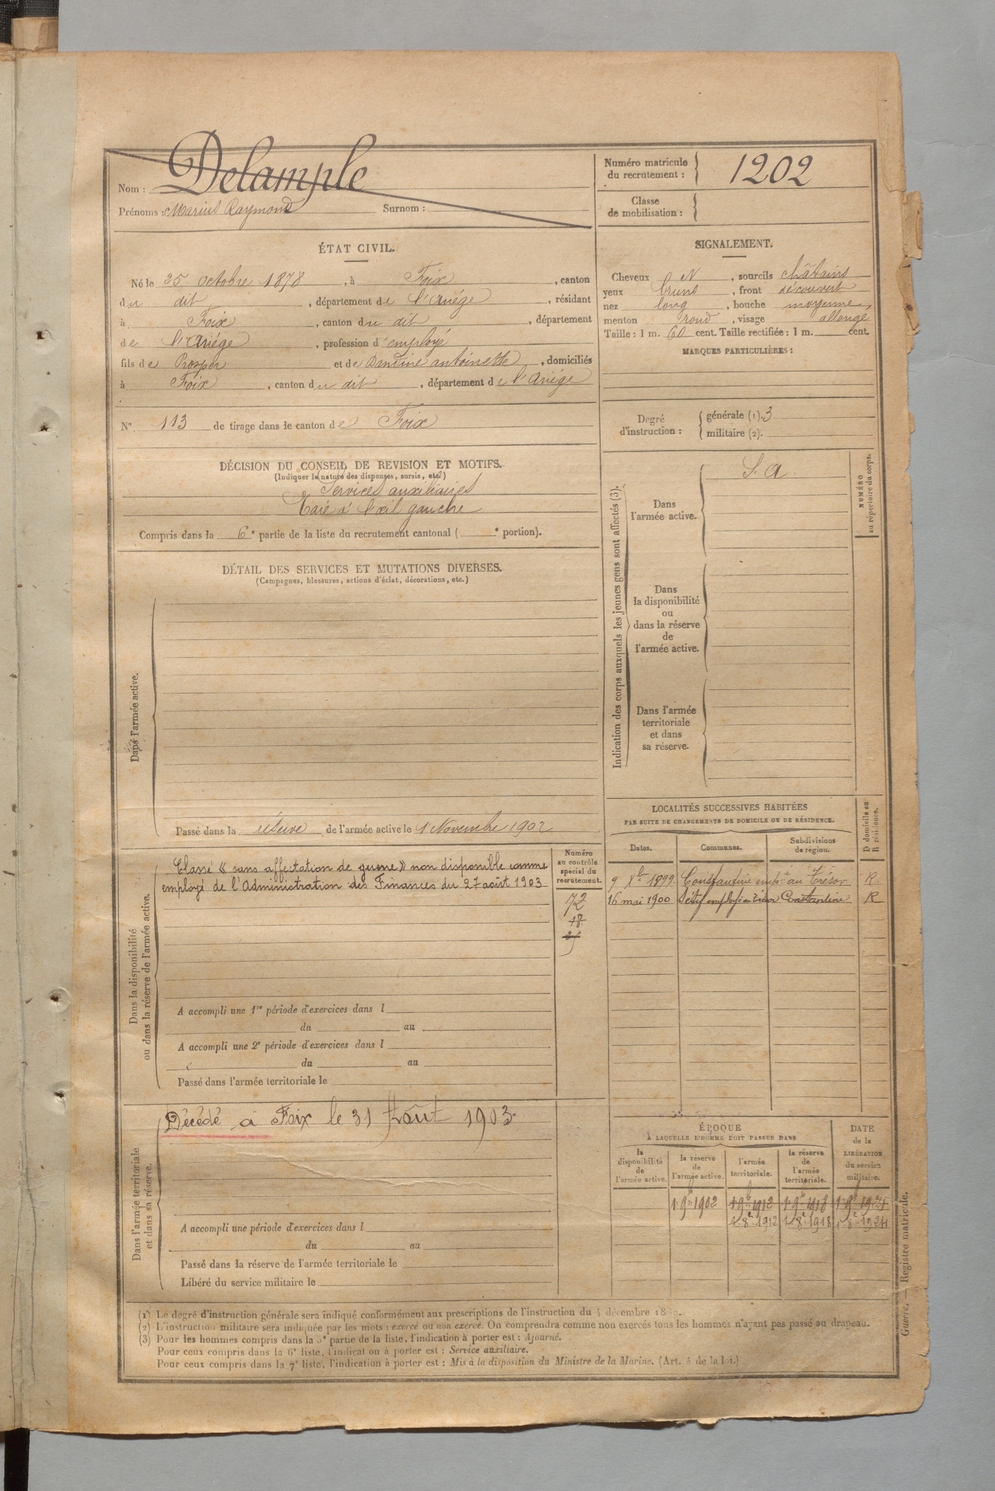 Nom : Delample
Prénoms : Marius Raymond Surnom :
Numéro matricule du recrutement : 1202
Classe de mobilisation :
ÉTAT CIVIL.
Né le 25 octobre 1878, à Foix, canton
du dit, département de l'Ariége, résidant
à Foix, canton du dit, département
de l'Ariége, profession d'employé
fils de Prosper et de antoinette, domiciliés
à Foix, canton du dit, département de l'Ariége
N° 113 de tirage dans le canton de Foix
SIGNALEMENT.
Cheveux N, sourcils châtains
yeux bruns, front découvert
nez long, bouche moyenne,
menton rond, visage allongé
Taille : 1 m. 60 cent. Taille rectifiée : 1 m. cent.
MARQUES PARTICULIÈRES :
Degré d'instruction : générale (1). 3
militaire (2).
DÉCISION DU CONSEIL DE REVISION ET MOTIFS.
(Indiquer la nature des dispenses, sursis, etc.)
Services auxiliaires
Taie à l'œil gauche
Compris dans la 6e partie de la liste du recrutement cantonal ( e portion).
DÉTAIL DES SERVICES ET MUTATIONS DIVERSES.
(Campagnes, blessures, actions d'éclat, décorations, etc.)
Dans l'armée active.
Passé dans la réserve de l'armée active le 1 Novembre 1902
Indication des corps auxquels les jeunes gens sont affectés (3).
Dans l'armée active.
S. A
NUMÉRO au répertoire du corps.
Dans la disponibilité ou dans la réserve de l'armée active.
Dans l'armée territoriale et dans sa réserve.
LOCALITÉS SUCCESSIVES HABITÉES
PAR SUITE DE CHANGEMENTS DE DOMICILE OU DE RÉSIDENCE.
Dates. Communes. Subdivisions de région. D domicile ou R résidence.
9 Xbre 1899 Constantine emp. au Trésor R
16 mai 1900 Sétif employé au Trésor Constantine R
Dans la disponibilité ou dans la réserve de l'armée active.
Classé « sans affectation de guerre » non disponible comme
employé de l'Administration des Finances du 27 août 1903
Numéro au contrôle spécial du recrutement.
72
18
A accompli une 1re période d'exercices dans l
du au
A accompli une 2e période d'exercices dans l
du au
Passé dans l'armée territoriale le
Dans l'armée territoriale et dans sa réserve.
Décédé à Foix le 31 Août 1903.
A accompli une période d'exercices dans l
du au
Passé dans la réserve de l'armée territoriale le
Libéré du service militaire le
ÉPOQUE
A LAQUELLE L'HOMME DOIT PASSER DANS
la disponibilité de l'armée active. la réserve de l'armée active. l'armée territoriale. la réserve de l'armée territoriale. DATE de la LIBÉRATION du service militaire.
1 9bre 1902 1 9bre 1912 1 9bre 1918 1 9bre 1924
1 8bre 1912 1 8bre 1918 1 8bre 1924
Guerre. — Registre matricule.
(1) Le degré d'instruction générale sera indiqué conformément aux prescriptions de l'instruction du 4 décembre
(2) L'instruction militaire sera indiquée par les mots : exercé ou non exercé. On comprendra comme non exercés tous les hommes n'ayant pas passé au drapeau.
(3) Pour les hommes compris dans la 5e partie de la liste, l'indication à porter est : Ajourné.
Pour ceux compris dans la 6e liste, l'indication à porter est : Service auxiliaire.
Pour ceux compris dans la 7e liste, l'indication à porter est : Mis à la disposition du Ministre de la Marine. (Art. 4 de la loi.)